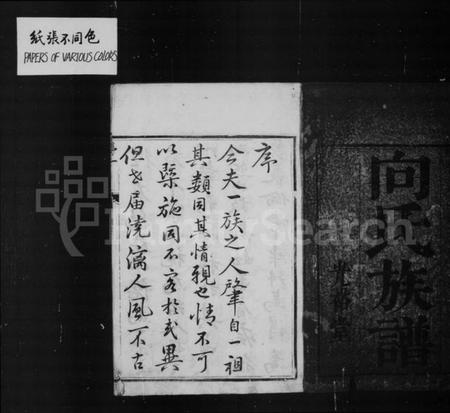 紙張不同色
PAPERS OF VARIOUS COLORS
向氏族譜
序
今夫一族之人肇自一祖
其類同其情親也情不可
以槩施同不容於或異
但世届澆漓人風不古
BinarySearch